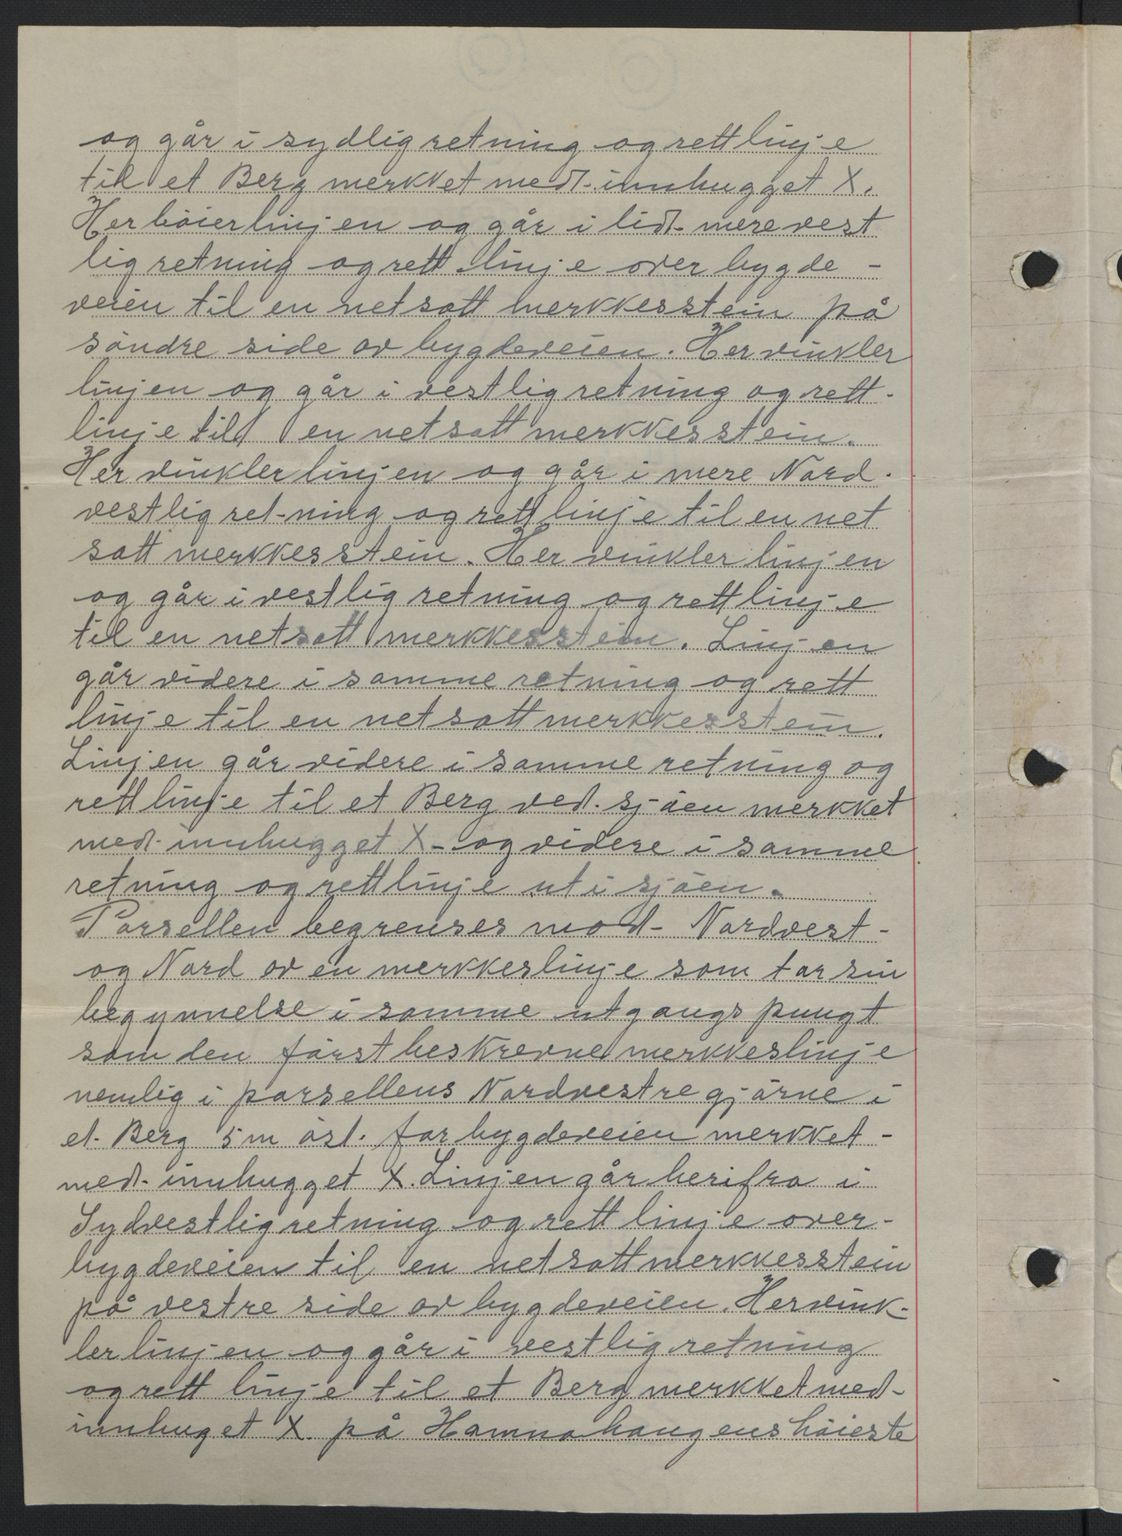 og går i sydlig retning og rett linje
til et Berg merkket med innhugget X.
Her böier linjen og går i lidt mere vest
lig retning og rett linje over bygde -
veien til en netsatt merkkesstein på
söndre side av bygdeveien. Her vinkler
linjen og går i vestlig retning og rett -
linje til en netsatt merkkesstein.
Her vinkler linjen og går i mere Nord -
vestlig ret-ning og rett linje til en net
satt merkkesstein. Her vinkler linjen
og går i vestlig retning og rett linje
til en netsatt merkkesstein. Linjen
går videre i samme retning og rett
linje til en netsatt merkkesstein.
Linjen går videre i samme retning og
rett linje til et Berg ved sjöen merkket
med innhugget X - og videre i samme
retning og rett linje ut i sjöen.
Parsellen begrenses mod - Nordvest -
og Nord av en merkkeslinje som tar sin
begynnelse i samme utgangspungt
som den först beskrevne merkkeslinje
nemlig i parsellens Nordvestre gjörne i
et Berg 5 m öst. for bygdeveien merkket -
med innhugget X. Linjen går herifra i
Sydvestlig retning og rett linje over -
bygdeveien til en netsatt merkkesstein
på vestre side av bygdeveien. Her vink-
ler linjen og går i vestlig retning
og rett linje til et Berg merkket med -
innhuget X. på Hamnahaugens höieste